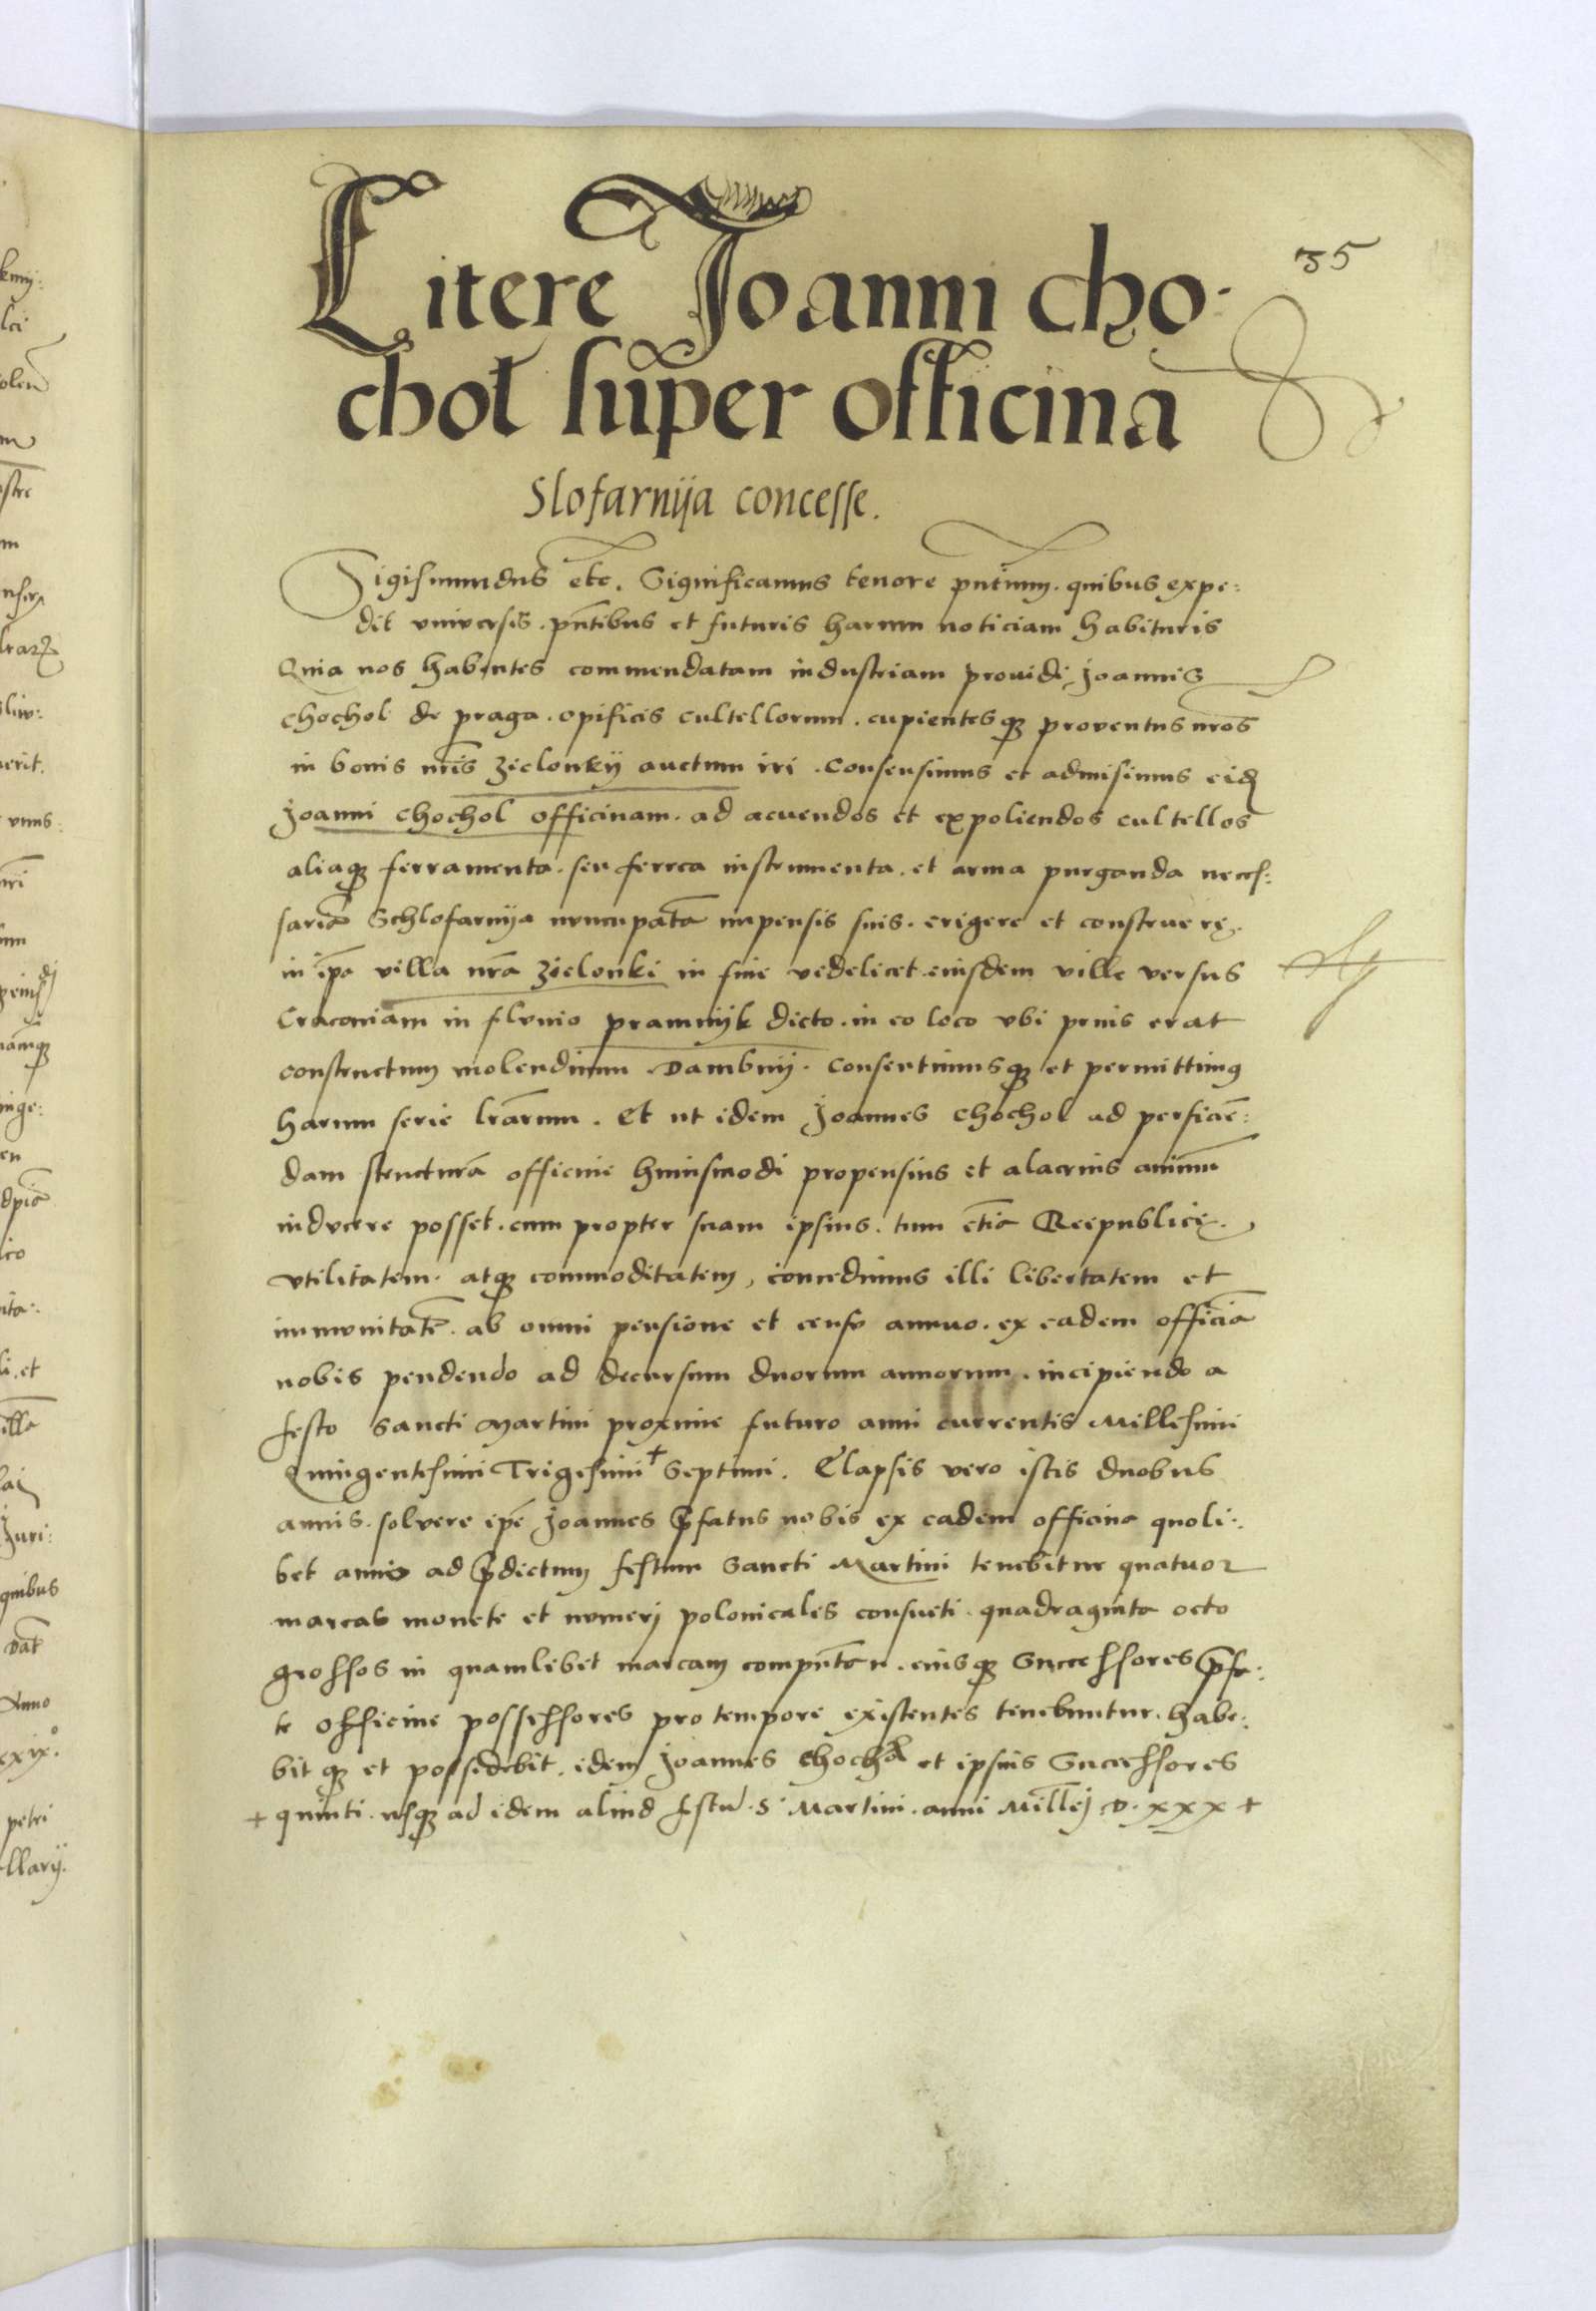 35
Litere Joanni cho-
chol super officina
Slofarnija concesse.
Sigismundus etc. Significamus tenore pntium. quibus expe:
dit vniversis. pntibus et futuris harum noticiam habituris
Quia nos habentes commendatam industriam prouidi Joannis
Chochol de praga. opificis cultellorum. cupientesq3 proventus nros
in bonis nris Zielonkÿ auctum iri. Consensimus et admisimus eid
Joanni Chochol officinam. ad acuendos et expoliendos cultellos
aliaq3 ferramenta. seu ferrea instrumenta. et arma purganda neces:
sariã Schlofarnÿa nuncupatã impensis suis. erigere et construere.
in ipa villa nra Zielonki in fine videlicet eiusdem ville versus
Cracouiam in fluuio pramnÿk dicto. in eo loco vbi prius erat
constructum molendinum Dambnÿ. Consentimusq3 et permittimus
harum serie lrarum. Et ut idem Joannes Chochol ad perficiẽ:
dam structurã officine huiusmodi propensius et alacrius animũ
inducere posset. cum propter suam ipsius. tum etiã Reipublice.
vtilitatem. atq3 commoditatem, concedimus illi libertatem et
immunitatẽ. ab omni pensione et censu annuo. ex eadem officiã
nobis pendendo ad decursum duorum annorum. incipiendo a
festo Sancti Martini proxime futuro anni currentis Millesimi
Quingentesimi Trigesimi + Septimi. Elapsis vero istis duobus
annis. solvere ipe Joannes pfatus nobis ex eadem officina quoli:
bet anno ad pdictum festum Sancti Martini tenebitur quatuor
marcas monete et numeri polonicales consueti. quadraginta octo
grossos in quamlibet marcam computan. eiusq3 Successores pfa:
te officine possessores pro tempore existentes tenebuntur. habe:
bitq3 et possidebit. idem Joannes Chochol et ipsius Successores
+ quinti. usq3 ad idem aliud festũ. S. Martini. anni Millej D. xxx +